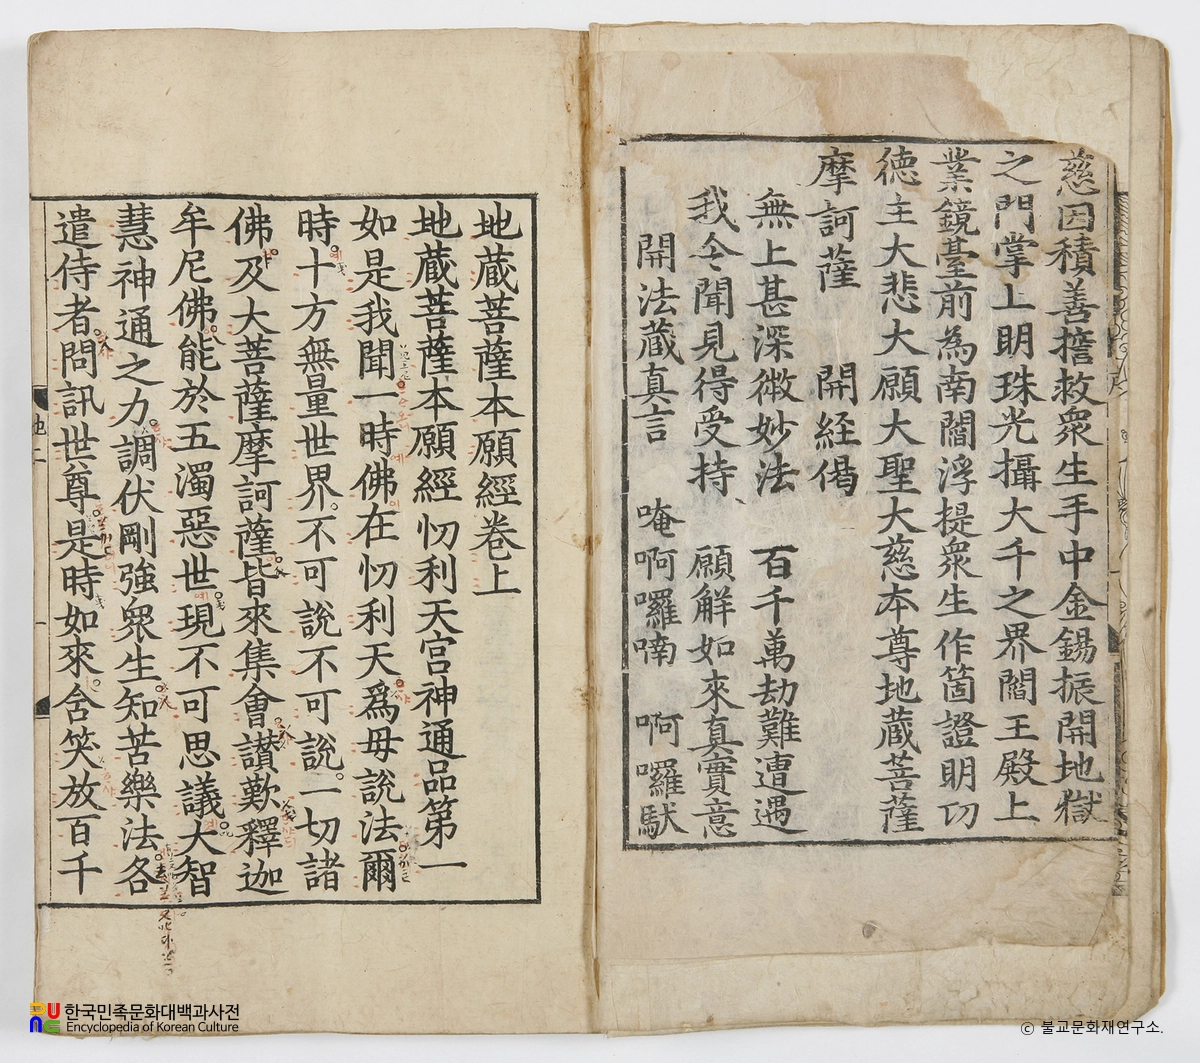 慈因積善擔救衆生手中金錫振開地獄
之門掌上明珠光攝大千之界閻王殿上
業鏡臺前為南閻浮提衆生作箇證明功
德主大悲大願大聖大慈本尊地蔵菩薩
摩訶薩 開経偈
無上甚深微妙法 百千萬劫難遭遇
我今聞見得受持 願解如來真實意
開法蔵真言 唵啊囉喃 啊囉馱
地蔵菩薩本願經卷上
地蔵菩薩本願經忉利天宮神通品第一
如是我聞一時佛在忉利天爲母說法爾
時十方無量世界不可說不可說一切諸
佛及大菩薩摩訶薩皆來集會讃歎釋迦
牟尼佛能於五濁惡世現不可思議大智
慧神通之力調伏剛強衆生知苦樂法各
遣侍者問訊世尊是時如來含笑放百千
地 二
한국민족문화대백과사전
Encyclopedia of Korean Culture
© 불교문화재연구소.